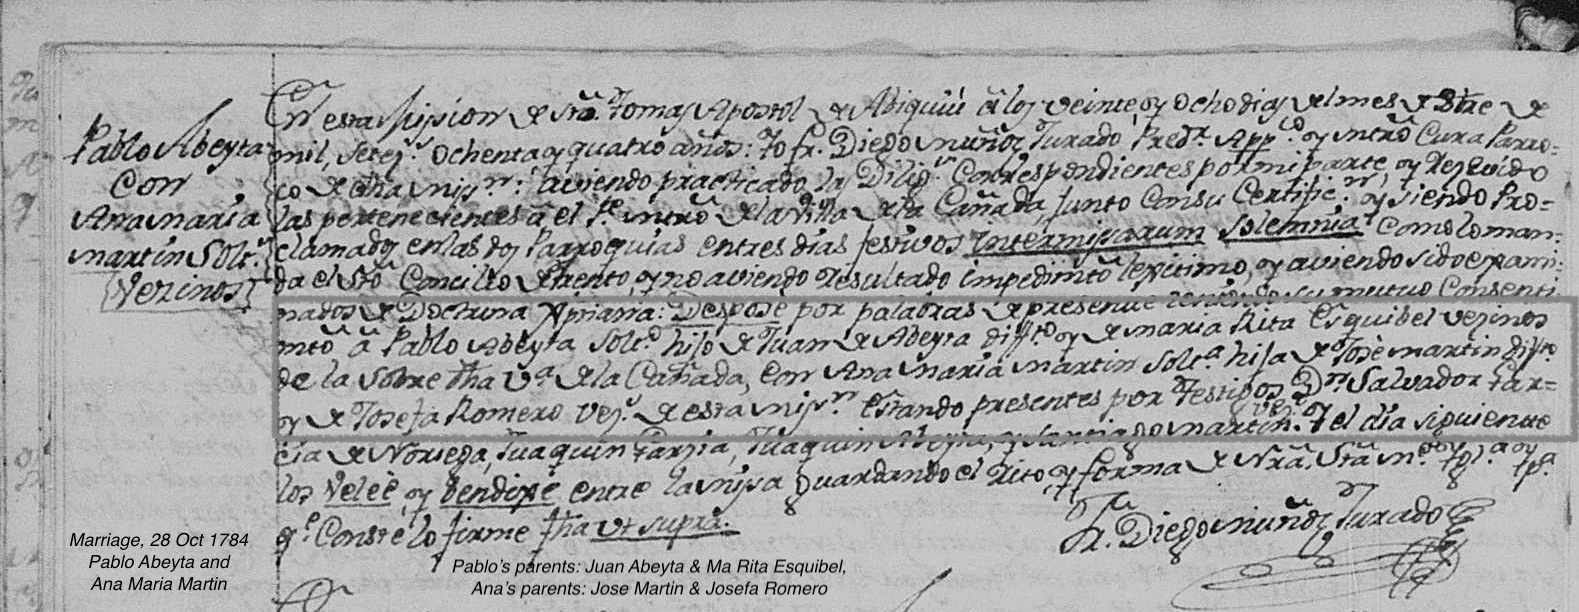 Pablo Abeyta
Con
Ana maria
martin Solt.s
Vezinos
En esta Mision de Sto. Tomas Apostol de Abiquiú á los veinte, y ocho dias del mes de 8bre de
mil, setez.s ochenta, y quatro años: Yo fr. Diego muñoz Jurado, Pred.r App.co y mtro Cura Parro=
co de dha mis.n: aviendo practicado las Dilig.s Correspondientes por mi parte, y rezevido
las pertenecientes á el Pe. mtro de la Villa de la Cañada, junto Con su Certific.n, y siendo Pro=
clamados en las dos Parroquias en tres dias festivos inter misarum solemnia Como lo man=
da el Sto. Concilio de trento, y no aviendo resultado impedimto lexitimo, y aviendo sido exami=
nados de Doctrina Xpriana: Despose por palabras de presente teniendo su mutuo Consenti
mto á Pablo Abeyta Solt.o hijo de Juan de Abeyta diffto y de maria Rita Esquibel vezinos
de la Sobre dha V.a de la Cañada, con Ana maria martin Solt.a hija de Jose martin diffto
y de Josefa Romero vez.s de esta mis.n estando presentes por Testigos Dn. Salvador Gar=
cia de Noriega, Juaquin Garzia, Juaquin Abeyta, y Santiago martin. Y el dia siguiente
los Velé, y bendixe entre la misa guardando el Rito, y forma de Nra. Sta. m.e Igl.a y p.a
q.e Conste lo firme fha ut supra.
Fr. Diego muñoz Jurado
Marriage, 28 Oct 1784
Pablo Abeyta and
Ana Maria Martin
Pablo's parents: Juan Abeyta & Ma Rita Esquibel,
Ana's parents: Jose Martin & Josefa Romero